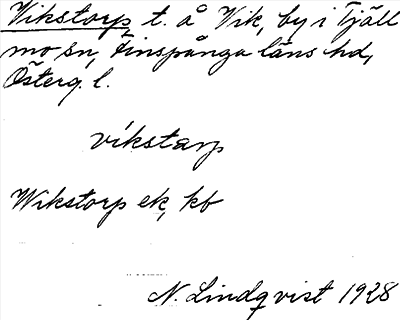 Vikstorp t. å Vik, by i Tjäll
mo sn, Finspånga läns hd,
Österg. l.
víkstarp
Wikstorp ek, kb
N. Lindqvist 1928